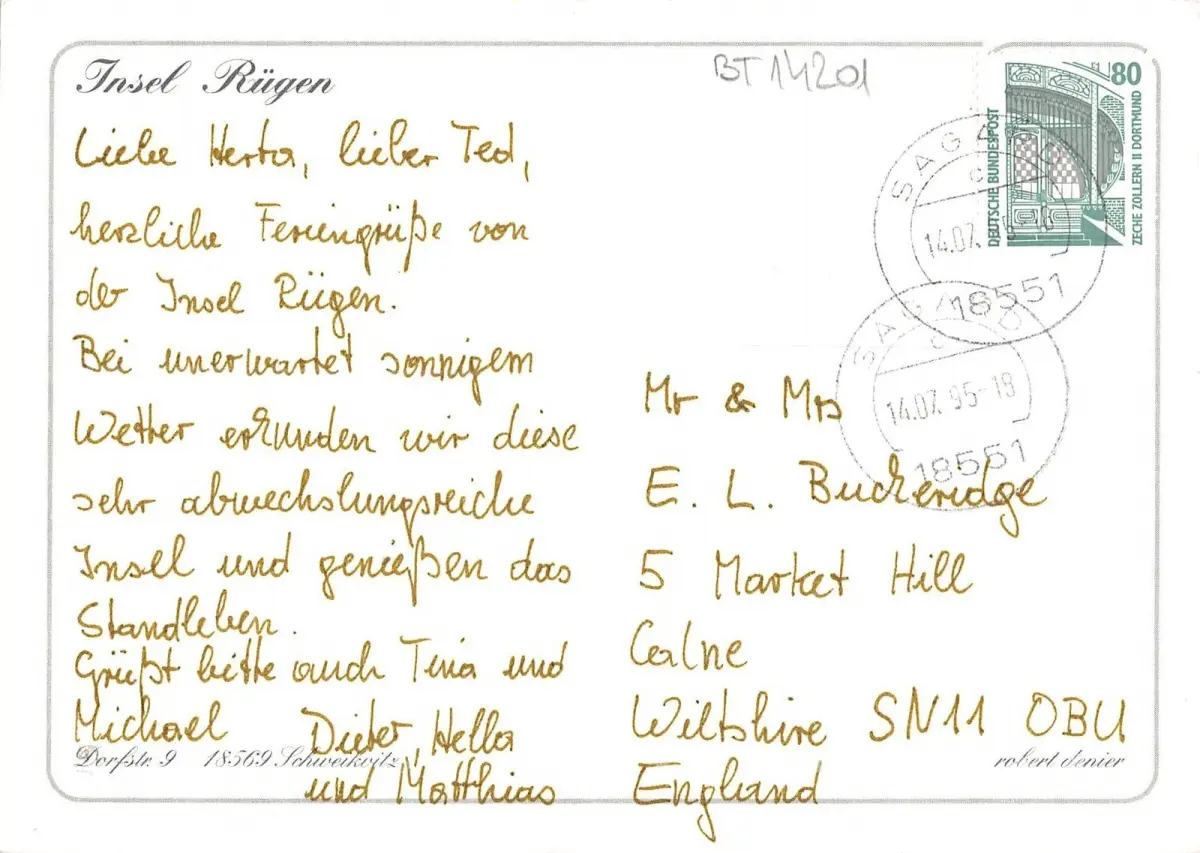 Insel Rügen
BT 14201
80
DEUTSCHE BUNDESPOST
ZECHE ZOLLERN II DORTMUND
SAGARD
c
14.07. 95-18
18551
SAGARD
c
14.07.95-18
18551
Liebe Herta, lieber Ted,
herzliche Feriengrüße von
der Insel Rügen.
Bei unerwartet sonnigem
Wetter erkunden wir diese
sehr abwechslungsreiche
Insel und genießen das
Standleben.
Grüßt bitte auch Tina und
Michael
Dieter, Hella
und Matthias
Mr & Mrs
E. L. Buckeridge
5 Market Hill
Calne
Wiltshire SN11 OBU
England
Dorfstr. 9 18569 Schweikvitz
robert denier